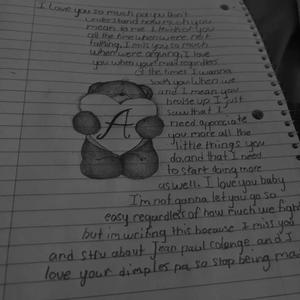 I love you so much pa you don't
understand how much you
mean to me I think of you
all the time when were not
talking. I miss you so much
when were arguing. I love
you when your mad regardless
of the times I wanna
sock you when we
and I mean you
broke up I just
saw that I
need appreciate
you more all the
little things you
do, and that I need
to start doing more
A
as well. I love you baby
I'm not gonna let you go so
easy regardless of how much we fight
but im writing this because I miss you
and stfu about jean paul colange and I
love your dimples pa so stop being mad